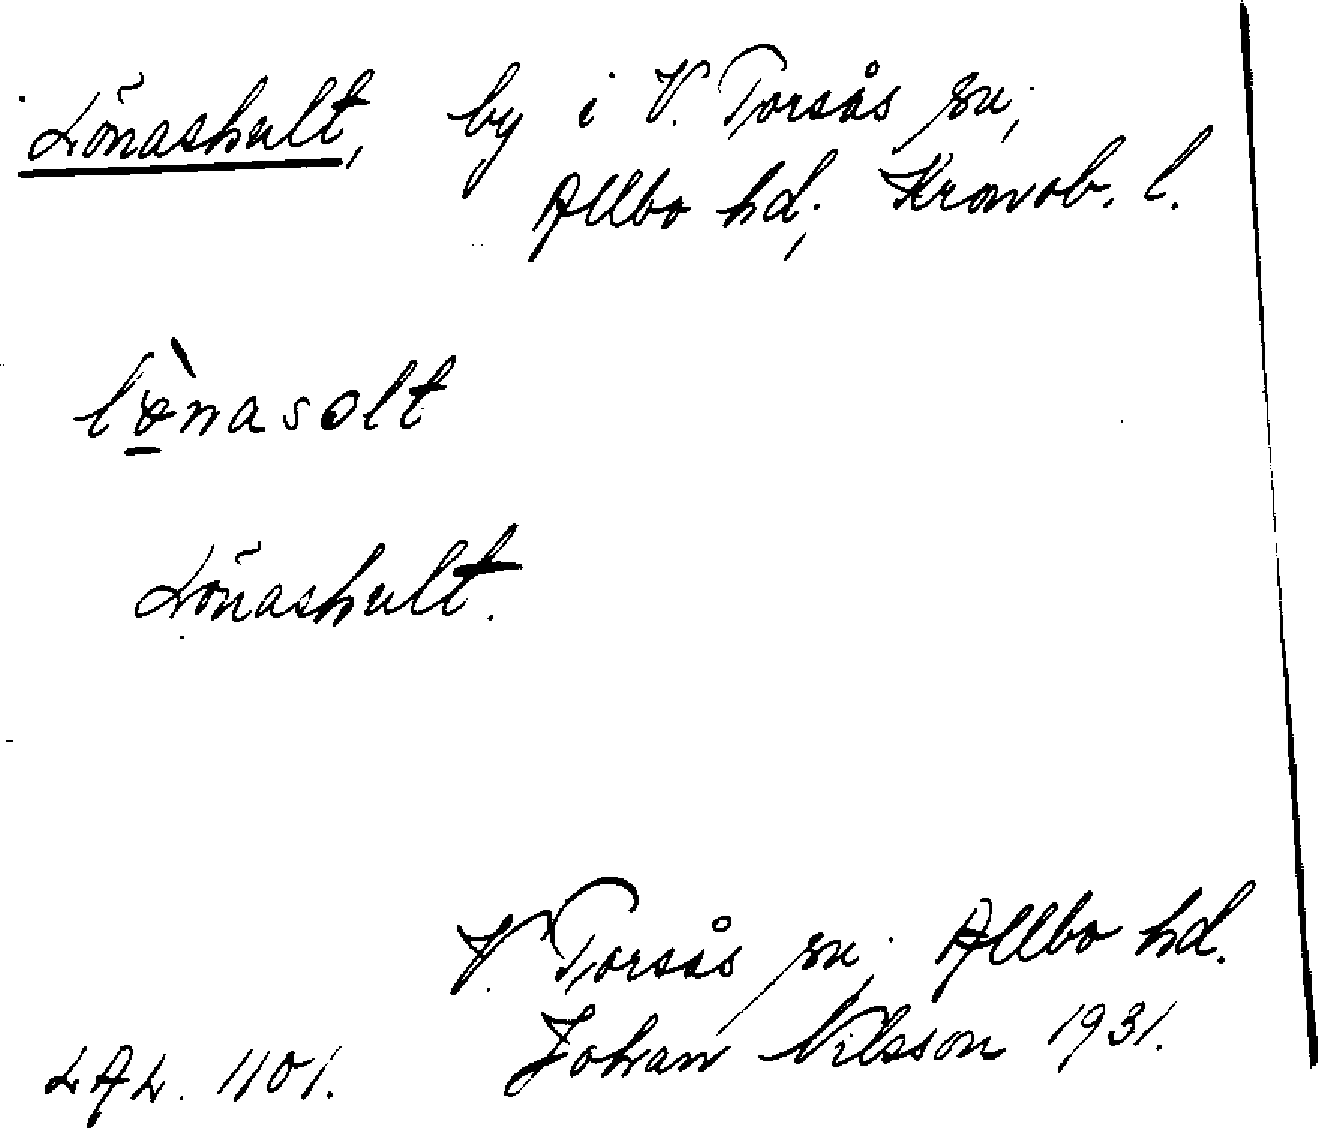 Lönashult, by i V. Torsås sn;
Allbo hd; Kronob. l.
lø̠̀nasolt
Lönashult.
V. Torsås sn; Allbo hd.
Johan Nilsson 1931.
LAL. 1101.